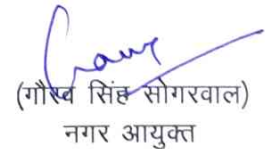 (गौरव सिंह सोगरवाल)
नगर आयुक्त